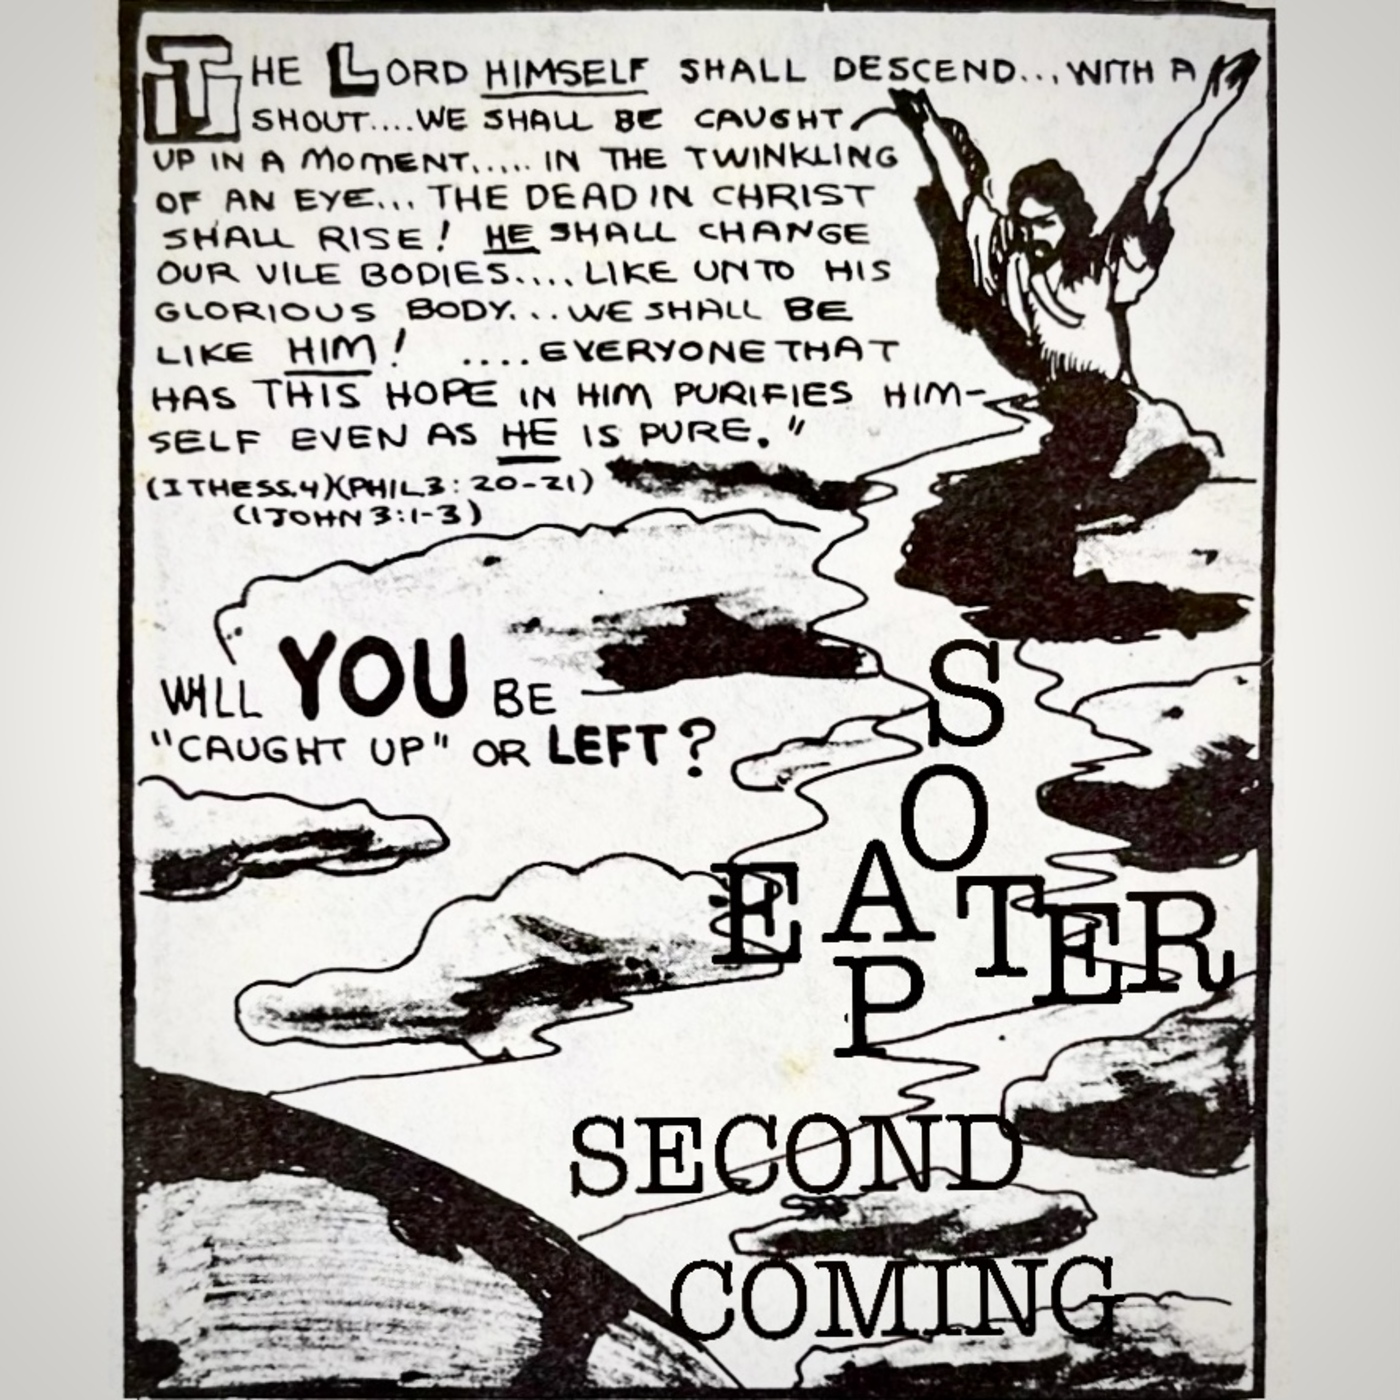 THE LORD HIMSELF SHALL DESCEND... WITH A
SHOUT....WE SHALL BE CAUGHT
UP IN A MOMENT..... IN THE TWINKLING
OF AN EYE... THE DEAD IN CHRIST
SHALL RISE! HE SHALL CHANGE
OUR VILE BODIES.... LIKE UNTO HIS
GLORIOUS BODY...WE SHALL BE
LIKE HIM! ....EVERYONE THAT
HAS THIS HOPE IN HIM PURIFIES HIM-
SELF EVEN AS HE IS PURE."
(I THESS.4)(PHIL3:20-21)
(1JOHN 3:1-3)
WILL YOU BE
"CAUGHT UP" OR LEFT?
SOAP
EATER
SECOND
COMING